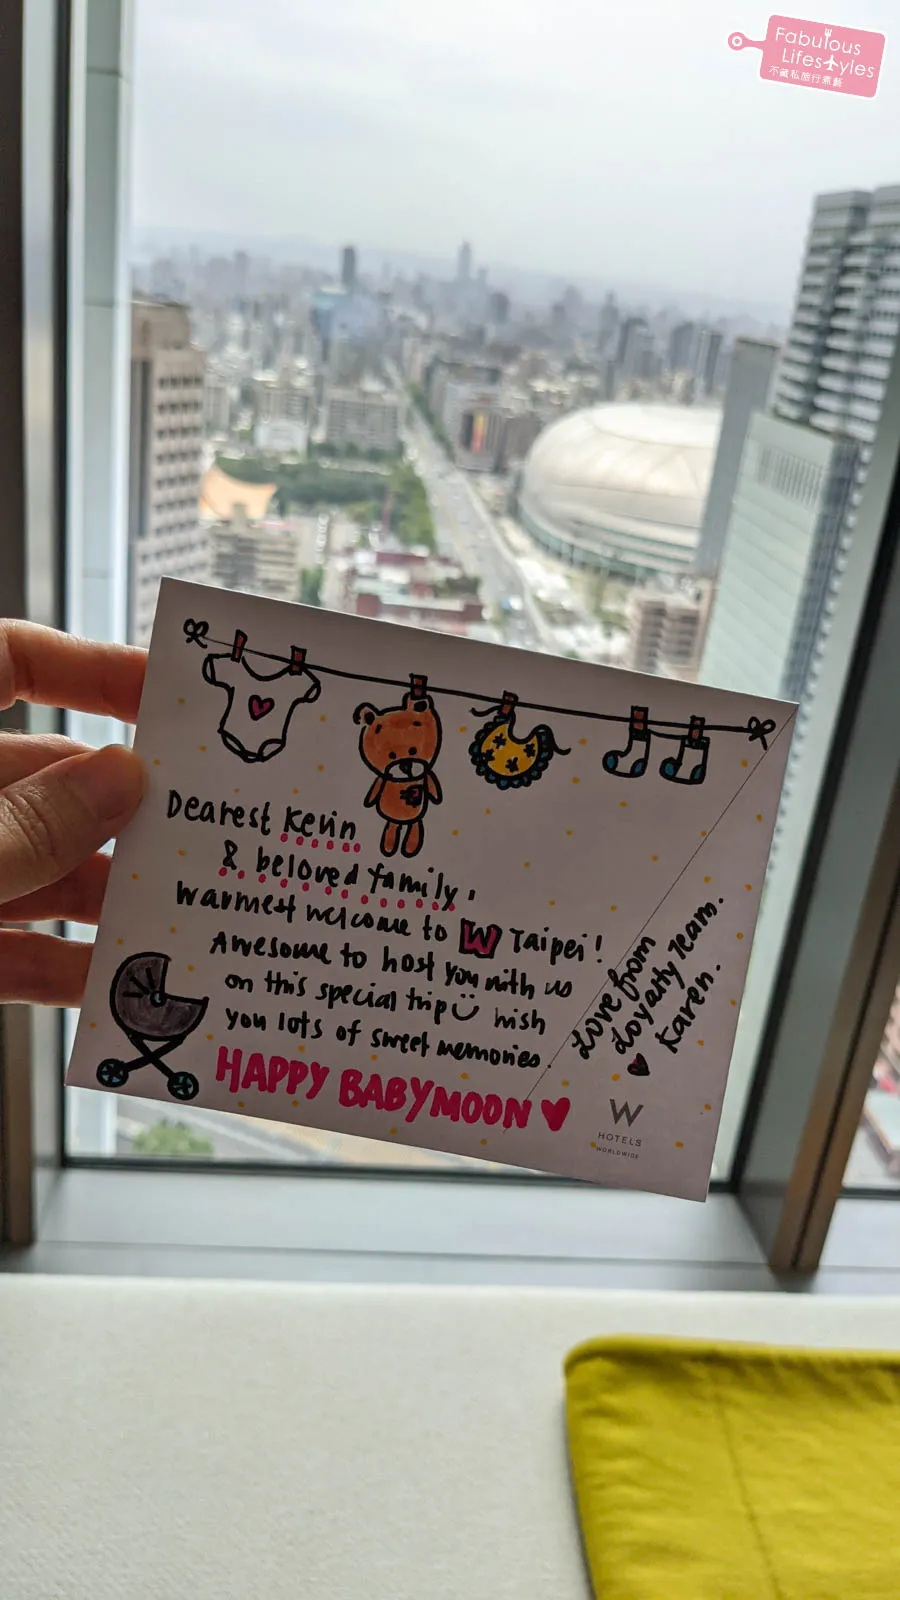 Fabulous
Lifestyles
不藏私旅行煮藝
Dearest Kevin
& beloved family,
Warmest welcome to W Taipei!
Awesome to host you with us
on this special trip wish
you lots of sweet memories.
HAPPY BABYMOON
Love from
Loyalty Team.
Karen.
W
HOTELS
WORLDWIDE